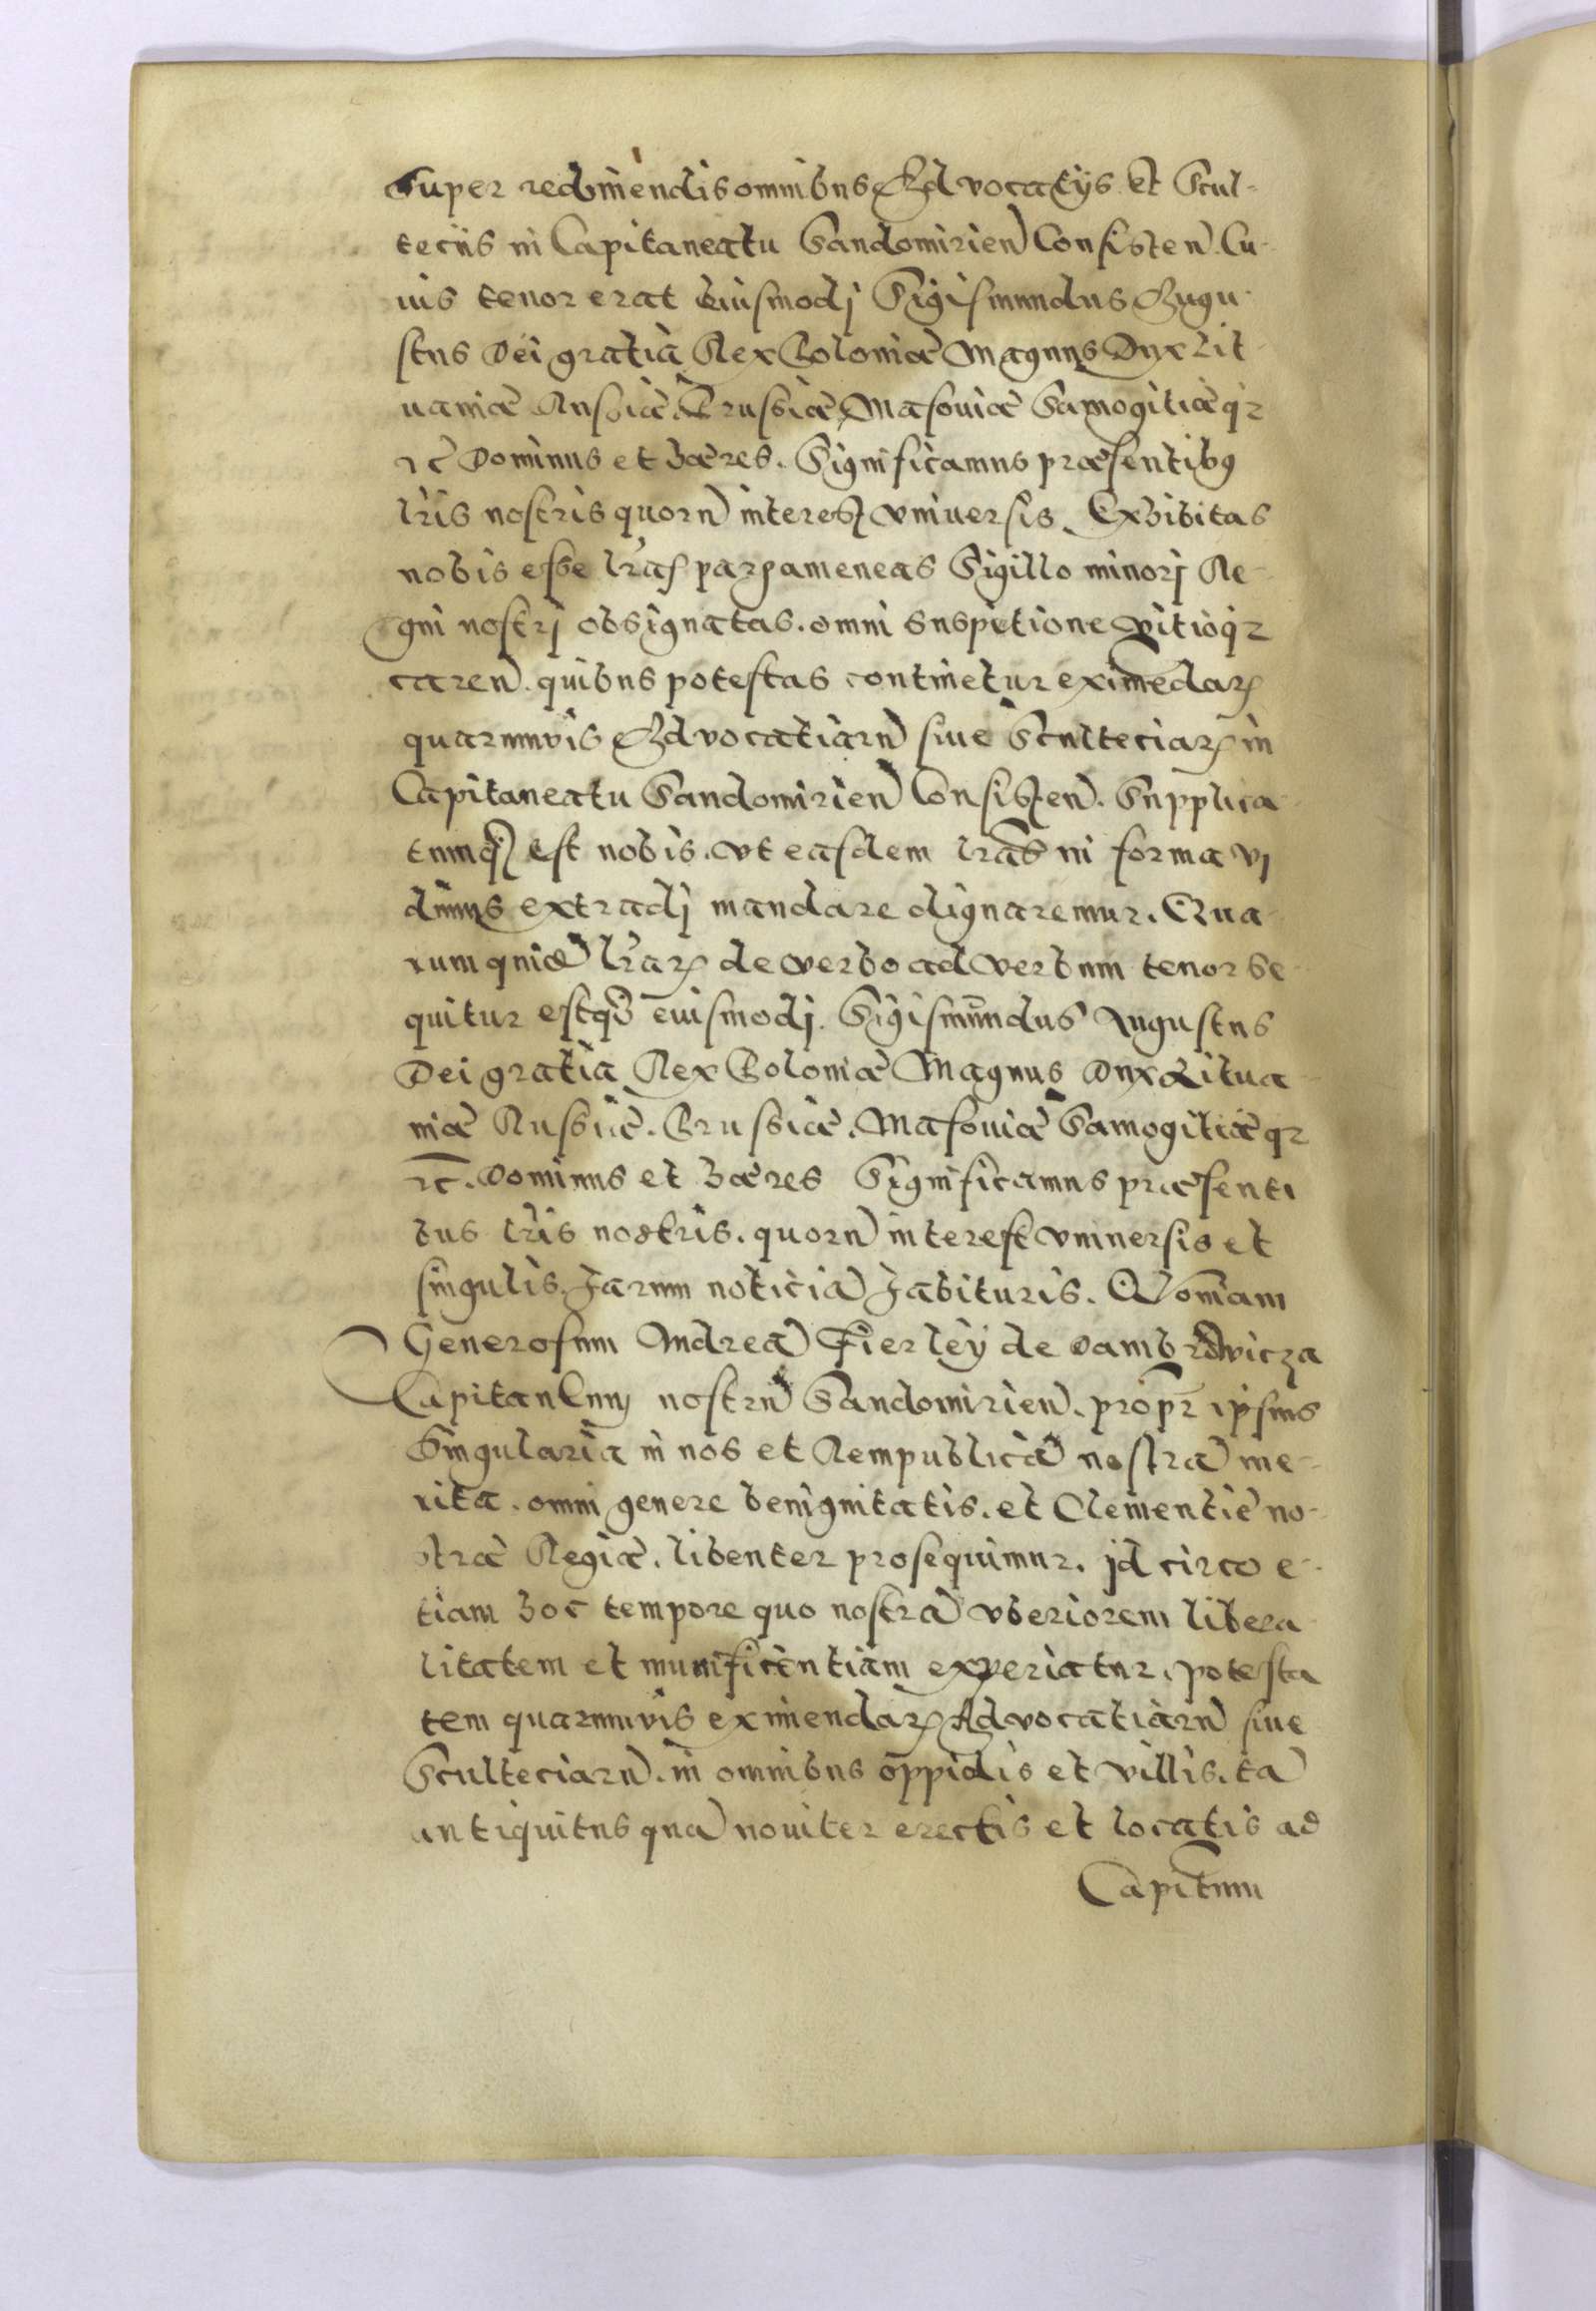 Super redimendis omnibus Advocatijs et Scul-
tecijs in Capitaneatu Sandomirien̄ Consisten̄. Cu-
ius tenor erat eiusmodj Sigismundus Augu-
stus Dei gratia Rex Poloniæ Magnus Dux Lit-
uaniæ Russiæ Prussiæ Masouiæ Samogitiæ q̄
ꝛc̄ Dominus et hæres. Significamus præsentibꝯ
lr̄is nostris quorū interest vniuersis. Exhibitas
nobis esse lr̄as pargameneas Sigillo minorj Re-
gni nostrj obsignatas. omni suspitione vitioq̄
caren̄. quibus potestas continetur eximēdaꝝ
quarumuis Advocatiarū siue Scultetiaꝝ in
Capitaneatu Sandomirien̄ Consisten̄. Supplica-
tumq̄ est nobis. vt easdem lr̄as in forma vi
dimus extradj mandare dignaremur. Qua-
rum quidē lr̄aꝝ de verbo ad verbum tenor se-
quitur estq̄ eiusmodj. Sigismundus Augustus
Dei gratia Rex Poloniæ Magnus Dux Litua-
niæ Russiæ. Prussiæ. Masouiæ Samogitiæ q̄
ꝛc̄. Dominus et hæres Significamus præsenti
bus lr̄is nostris. quorū interest vniuersis et
singulis. harum noticiā habituris. Quoniam
Generosum Andreā Fierleÿ de Dambrowicza
Capitaneum nostrū Sandomirien̄. propr̄ ipsius
Singularia in nos et Rempublicā nostrā me-
rita. omni genere benignitatis. et Clementiæ no-
stræ Regiæ. libenter prosequimur. jd circo e-
tiam hoc tempore quo nostrā vberiorem libera
litatem et munificentiam experiatur. potesta
tem quarumuis eximendaꝝ Advocatiarū siue
Sculteciarū. in omnibus oppidis et villis. tā
antiquitus quā nouiter erectis et locatis ad
Capitnm